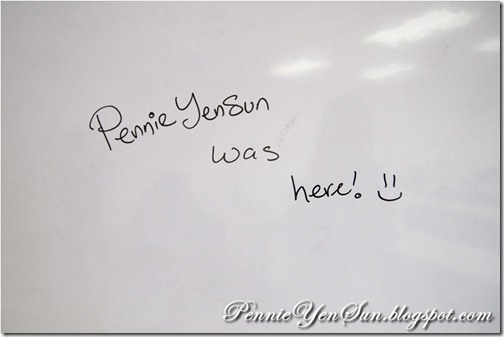 Pennie YenSun
was
here! :)
PennieYenSun.blogspot.com